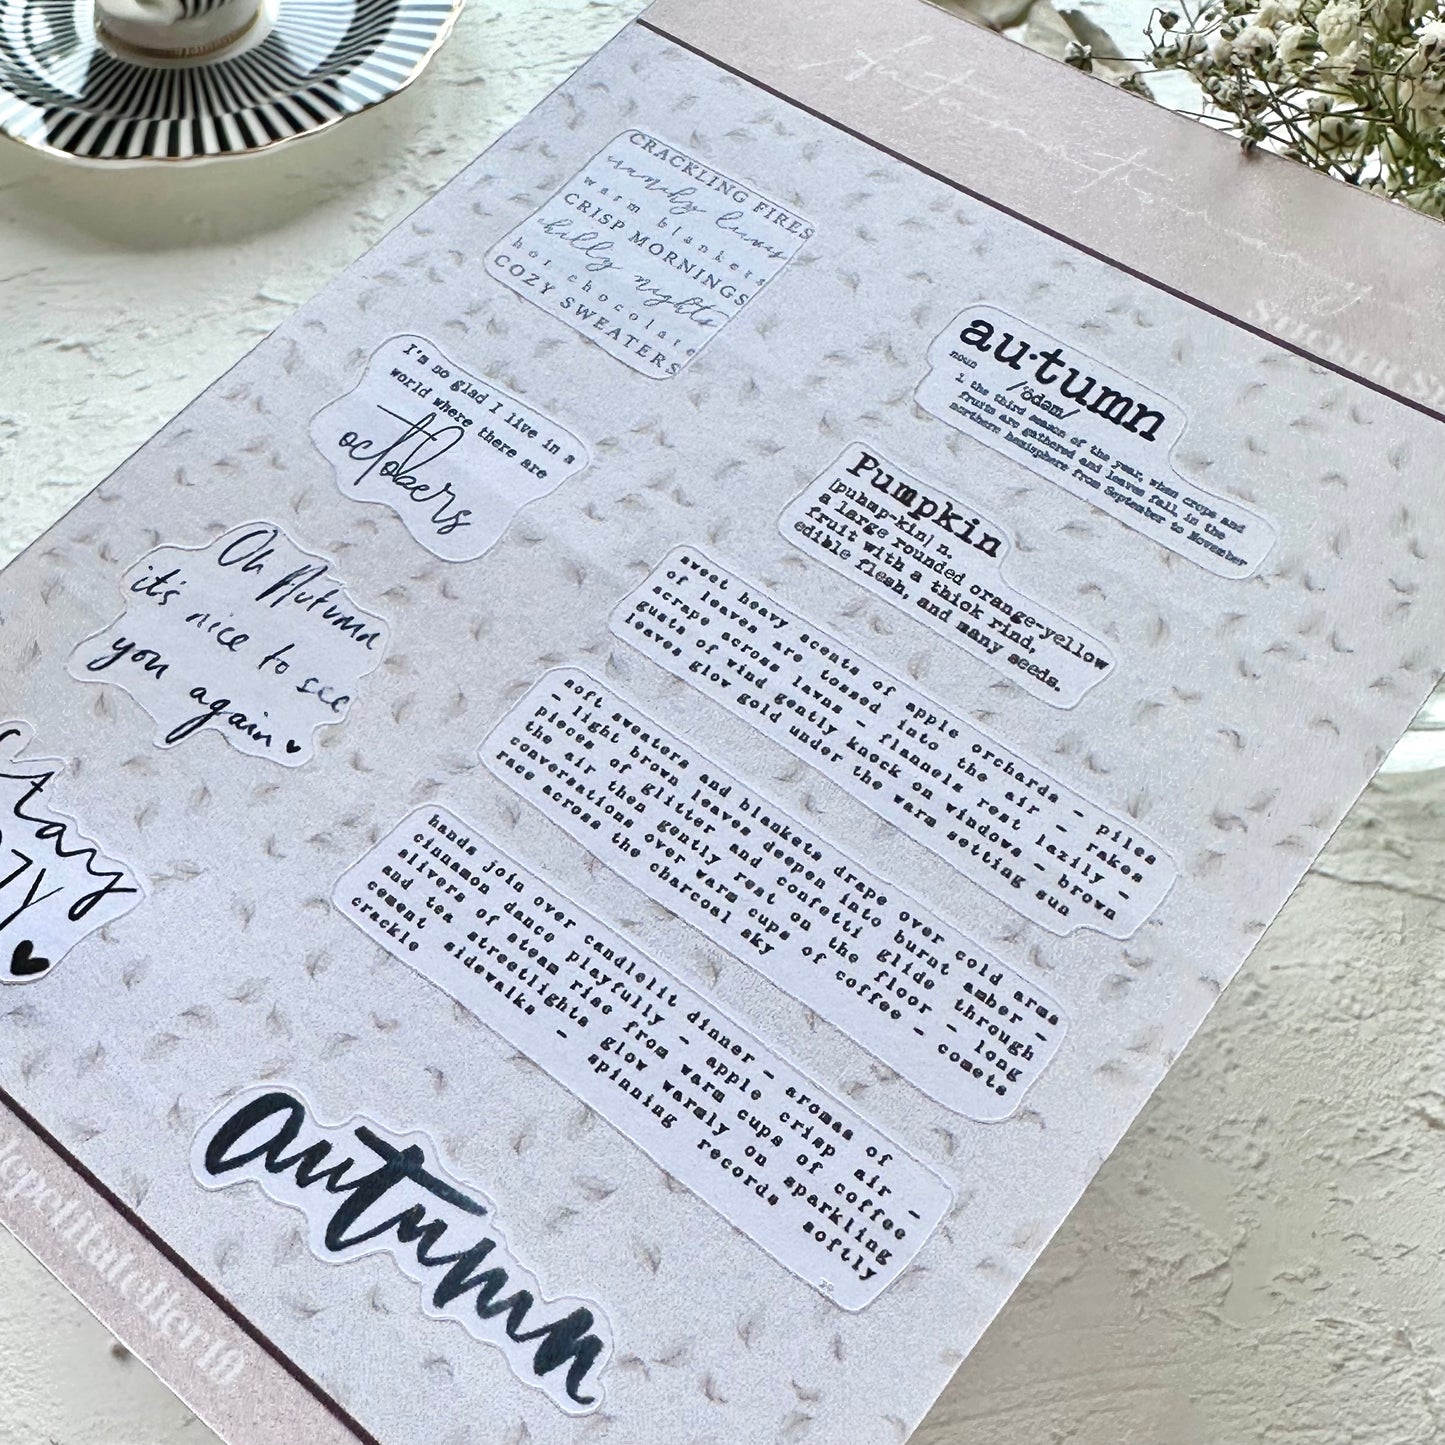 CRACKLING FIRES
warm blankets
CRISP MORNINGS
chilly nights
hot chocolate
COZY SWEATERS
au·tumn
noun /ôdəm/
1. the third season of the year, when crops and
fruits are gathered and leaves fall, in the
northern hemisphere from September to November
I'm so glad I live in a
world where there are
octobers
Pumpkin
[puhmp-kin] n.
a large rounded orange-yellow
fruit with a thick rind,
edible flesh, and many seeds.
Oh Autumn
it's nice to see
you again ♥
sweet heavy scents of apple orchards - piles
of leaves are tossed into the air - rakes
scrape across lawns - flannels rest lazily -
gusts of wind gently knock on windows - brown
leaves glow gold under the warm setting sun
soft sweaters and blankets drape over cold arms
- light brown leaves deepen into burnt amber -
pieces of glitter and confetti glide through
the air then gently rest on the floor - long
conversations over warm cups of coffee - comets
race across the charcoal sky
stay
hands join over candlelit dinner - aromas of
cinnamon dance playfully - apple crisp air -
slivers of steam rise from warm cups of coffee
and tea - streetlights glow warmly on sparkling
cement sidewalks - spinning records softly
crackle
autumn